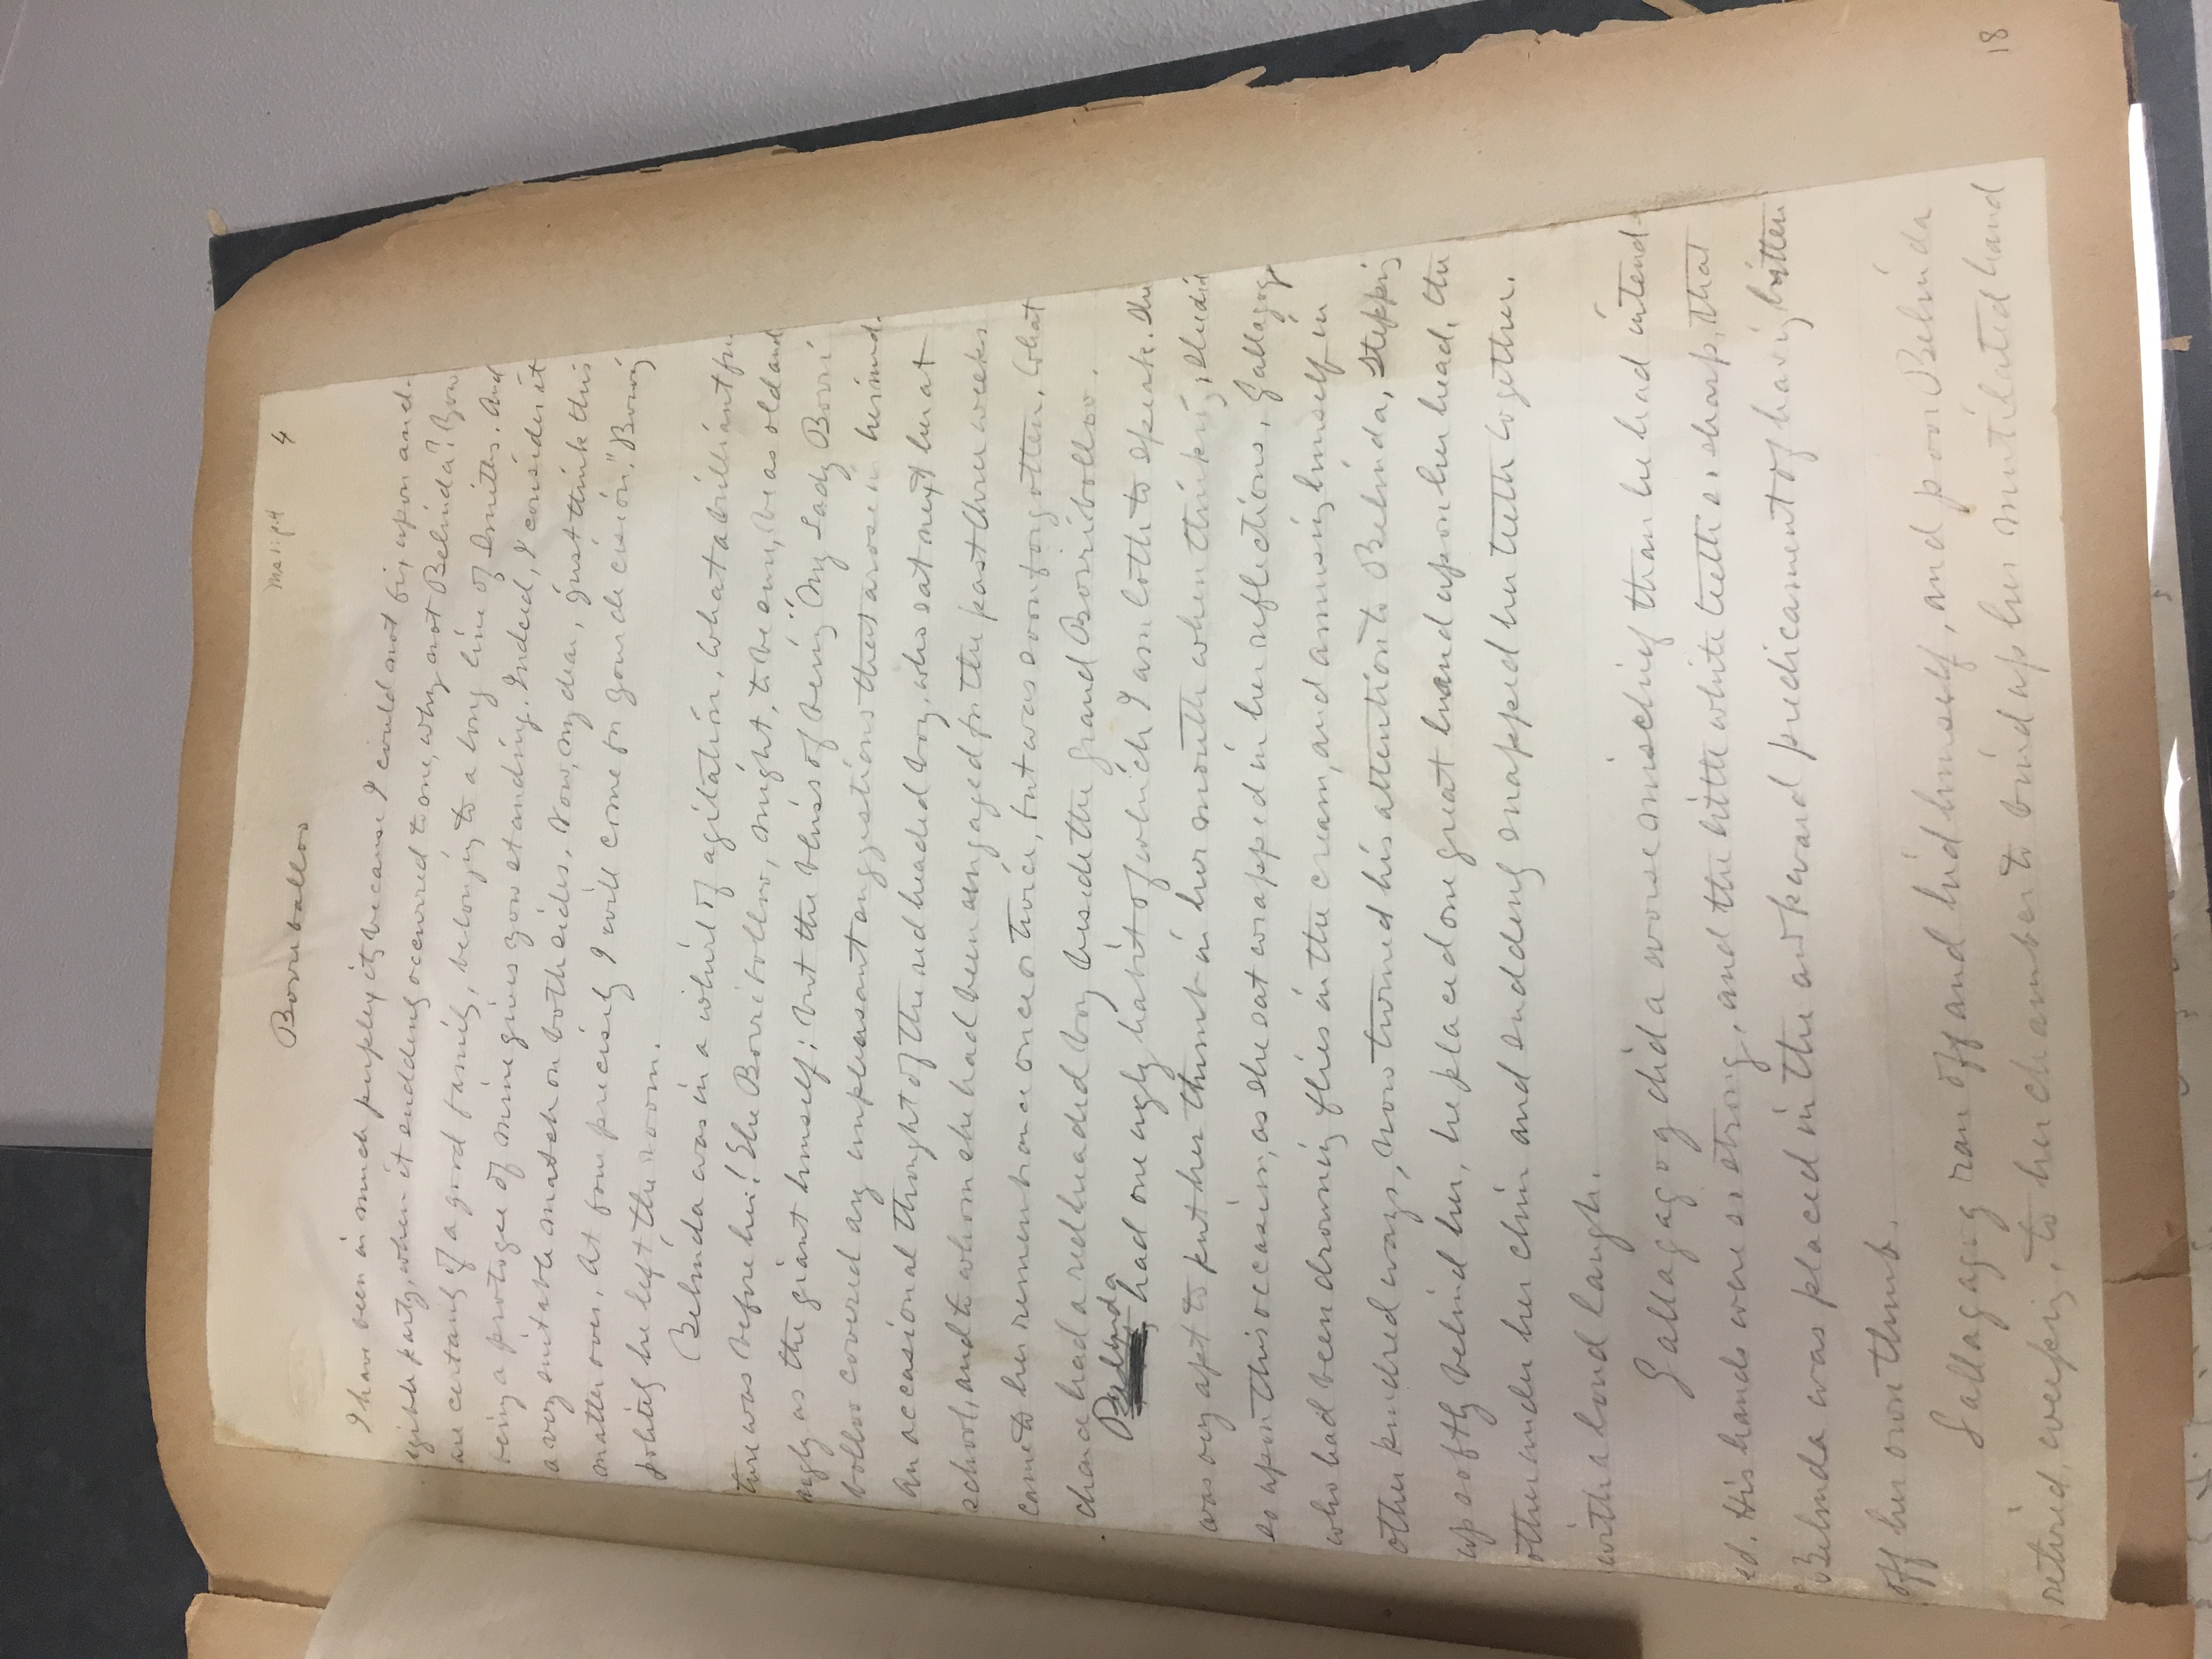 Borriballoo
Ms 1: p.4 4
I have been in much perplexity because I could not fix upon an el-
igible party, when it suddenly occurred to me, why not Belinda? You
are certainly of a good family, belonging to a long line of Smiths. And
being a protogee of mine gives you standing. Indeed, I consider it
a very suitable match on both sides. Now, my dear, just think this
matter over. At four precisely I will come for your decision." Bowing
politely he left the room.
Belinda was in a whirl of agitation. What a brilliant fu-
ture was before her! The Borriballoo, might, to be sure, be as old and
ugly as the giant himself; but the bliss of being "My Lady Borri
balloo covered any unpleasant suggestions that arose in her mind.
An occasional thought of the red headed boy, who sat next her at
school, and to whom she had been engaged for the past three weeks
came to her remembrance once or twice, but was soon forgotten. What
chance had a redheaded boy beside the grand Borriballoo.
Belinda
had one ugly habit of which I am loth to speak. She
was very apt to put her thumb in her mouth when thinking; She did
so upon this occasion, as she sat wrapped in her reflections. Gallagog,
who had been drowning flies in the cream, and amusing himself in
other kindred ways, now turned his attention to Belinda, Stepping
up softly behind her, he placed one great hand upon her head, the
other under her chin and suddenly snapped her teeth together.
with a loud laugh.
Gallagagog did a worse mischief than he had intend-
ed. His hands were so strong, and the little white teeth so sharp, that
Belinda was placed in the awkward predicament of having bitten
off her own thumb.
Gallagagog ran off and hid himself, and poor Belinda
retired, weeping, to her chamber to bind up her mutilated hand
18